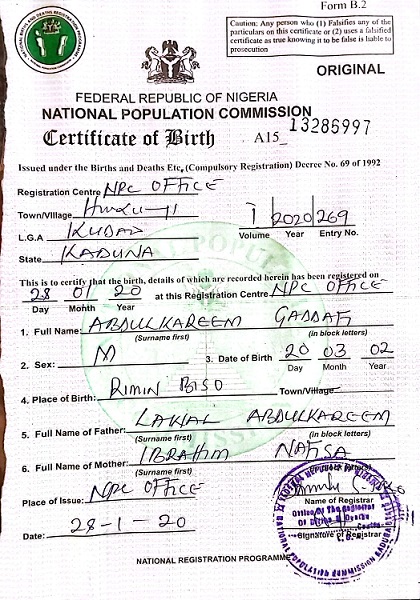 Form B.2
Caution: Any person who (1) Falsifies any of the
particulars on this certificate or (2) uses a falsified
certificate as true knowing it to be false is liable to
prosecution
ORIGINAL
FEDERAL REPUBLIC OF NIGERIA
NATIONAL POPULATION COMMISSION
Certificate of Birth A15_ 13285997
Issued under the Births and Deaths Etc, (Compulsory Registration) Decree No. 69 of 1992
Registration Centre NPC OFFICE
Town/Village
L.G.A
State KADUNA
1 2020 269
Volume Year Entry No.
This is to certify that the birth, details of which are recorded herein has been registered on
28 01 20 at this Registration Centre NPC OFFICE
Day Month Year
1. Full Name: ABDULKAREEM GADDAFI
(Surname first) (in block letters)
2. Sex: M 3. Date of Birth 20 03 02
Day Month Year
4. Place of Birth: RIMIN Town/Village
5. Full Name of Father: LAWAL ABDULKAREEM
(Surname first) (in block letters)
6. Full Name of Mother: IBRAHIM NAFISA
(Surname first)
Place of Issue: NPC OFFICE
Date: 28-1-20
Name of Registrar
Signature of Registrar
NATIONAL REGISTRATION PROGRAMME